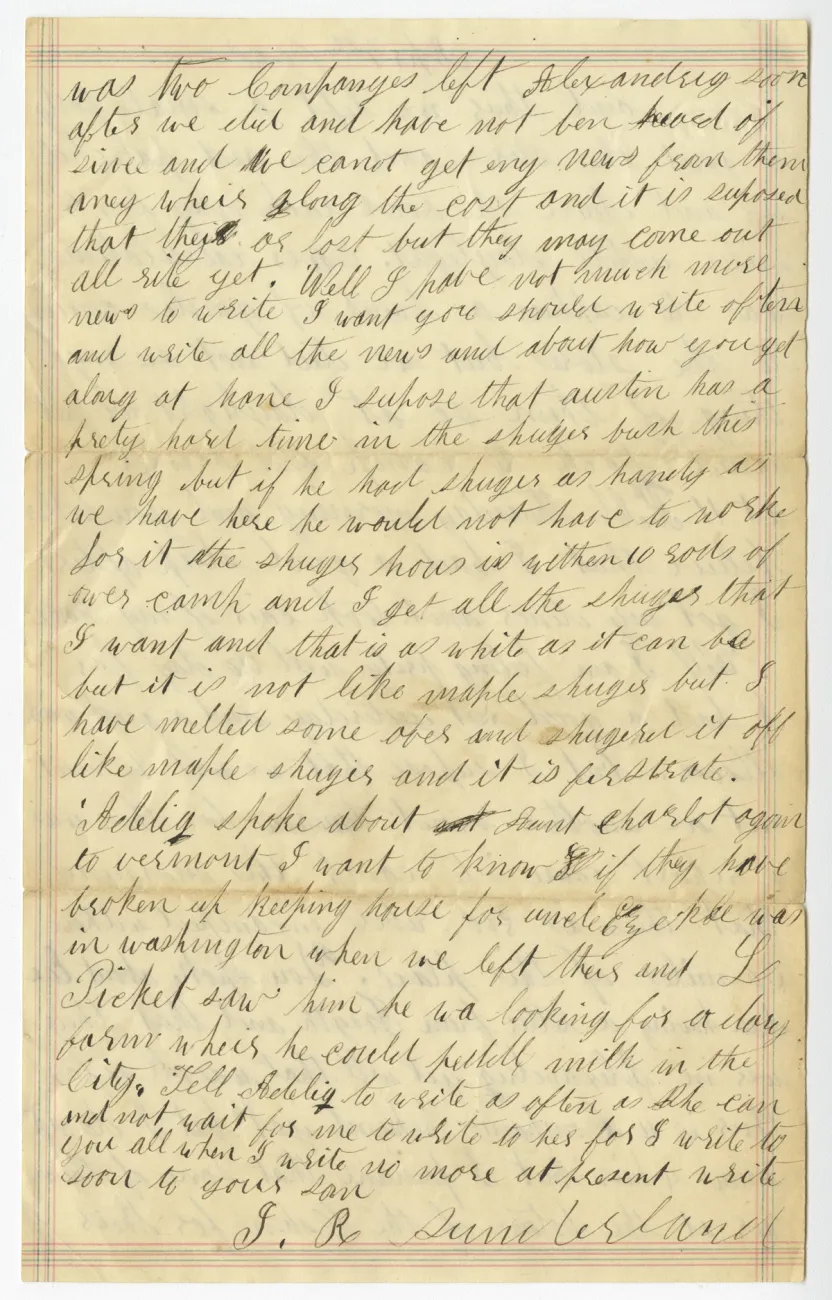 was two Companyes left Alexandria soon
after we did and have not ben heard of
since and We canot get eny news from them
aney wheir along the cost and it is suposed
that their or lost but they may come out
all rite yet. Well I have not much more
news to write I want you should write often
and write all the news and about how you get
along at home I supose that austin has a
prety hard time in the shuger bush this
spring but if he had shuger as handy as
we have here he would not have to worke
for it the shuger hous is within 10 rods of
ower camp and I get all the shuger that
I want and that is as white as it can be
but it is not like maple shuger but I
have melted some over and shugerd it off
like maple shuger and it is firstrate.
Adelia spoke about Aunt charlot again
to vermont I want to know if they have
broken up keeping house for uncle was
in washington when we left their and L
Picket saw him he wa looking for a dary
farm wheir he could peddle milk in the
City. Tell Adelia to write as often as She can
and not wait for me to write to her for I write to
you all when I write no more at present write
soon to your son
J. R Sunderland